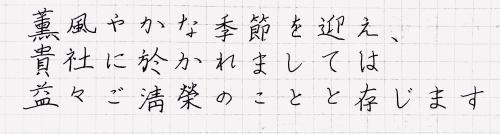 薫風やかな季節を迎え、
貴社に於かれましては
益々ご清榮のことと存じます